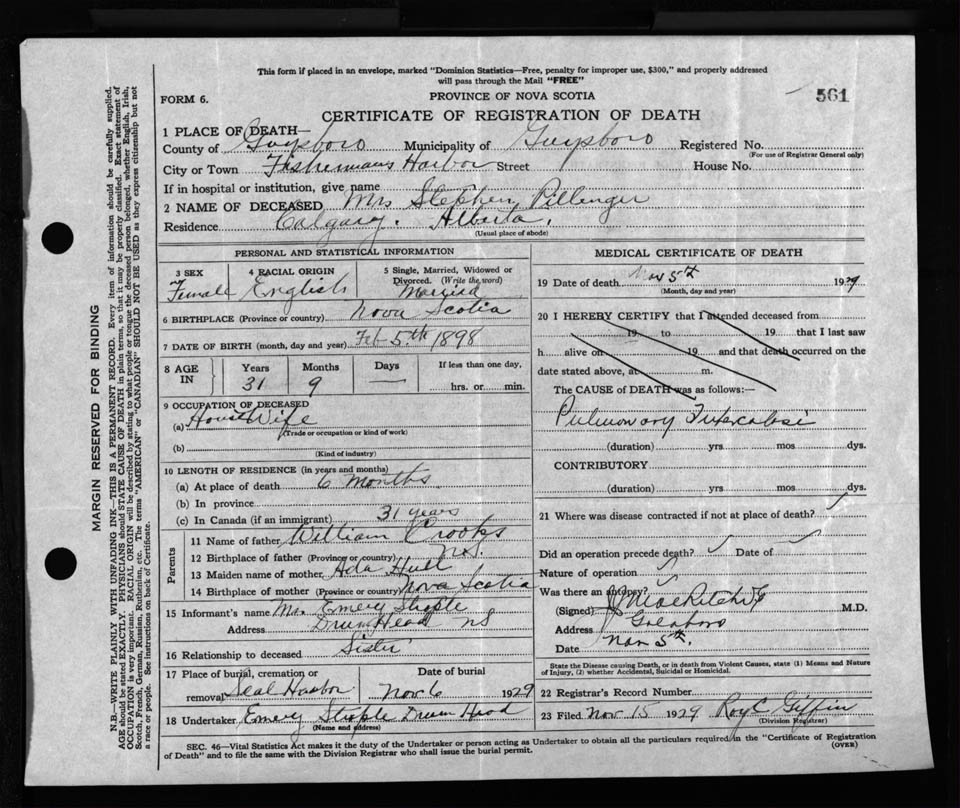 This form if placed in an envelope, marked "Dominion Statistics—Free, penalty for improper use, $300," and properly addressed
will pass through the Mail "FREE"
FORM 6.
PROVINCE OF NOVA SCOTIA
561
CERTIFICATE OF REGISTRATION OF DEATH
1 PLACE OF DEATH—
County of Guysboro Municipality of Guysboro Registered No.
(For use of Registrar General only)
City or Town Fishermans Harbor Street House No.
If in hospital or institution, give name
2 NAME OF DECEASED Mrs Stephen Pillenger
Residence Calgary. Alberta.
(Usual place of abode)
PERSONAL AND STATISTICAL INFORMATION
3 SEX 4 RACIAL ORIGIN 5 Single, Married, Widowed or
Divorced. (Write the word)
Female English Married
6 BIRTHPLACE (Province or country) Nova Scotia
7 DATE OF BIRTH (month, day and year) Feb 5th 1898
8 AGE IN Years Months Days If less than one day,
31 9 — hrs. or min.
9 OCCUPATION OF DECEASED
(a) House Wife
(Trade or occupation or kind of work)
(b)
(Kind of industry)
10 LENGTH OF RESIDENCE (in years and months)
(a) At place of death 6 months
(b) In province
(c) In Canada (if an immigrant) 31 years
Parents
11 Name of father William Crooks
12 Birthplace of father (Province or country) N.S.
13 Maiden name of mother Ada Hull
14 Birthplace of mother (Province or country) Nova Scotia
15 Informant's name Mr. Emery
Address Drum Head NS
16 Relationship to deceased Sister
17 Place of burial, cremation or Date of burial
removal Seal Harbor Nov 6 1929
18 Undertaker Emery Drum Head
(Name and address)
MEDICAL CERTIFICATE OF DEATH
19 Date of death Nov 5th 1929
(Month, day and year)
20 I HEREBY CERTIFY that I attended deceased from
19 to 19 that I last saw
h alive on 19 and that death occurred on the
date stated above, at m.
The CAUSE of DEATH was as follows:—
Pulmonary
(duration) yrs mos dys.
CONTRIBUTORY
(duration) yrs. mos dys.
21 Where was disease contracted if not at place of death?
Did an operation precede death? Date of
Nature of operation
Was there an autopsy?
(Signed) M.D.
Address Goldboro
Date Nov 5th.
State the Disease causing Death, or in death from Violent Causes, state (1) Means and Nature
of Injury, (2) whether Accidental, Suicidal or Homicidal.
22 Registrar's Record Number
23 Filed Nov 15 1929 Roy C Giffin
(Division Registrar)
SEC. 46—Vital Statistics Act makes it the duty of the Undertaker or person acting as Undertaker to obtain all the particulars required in the "Certificate of Registration
of Death" and to file the same with the Division Registrar who shall issue the burial permit.
(OVER)
MARGIN RESERVED FOR BINDING
N.B.—WRITE PLAINLY WITH UNFADING INK—THIS IS A PERMANENT RECORD. Every item of information should be carefully supplied.
AGE should be stated EXACTLY. PHYSICIANS should STATE CAUSE OF DEATH in plain terms, so that it may be properly classified. Exact statement of
OCCUPATION is very important. RACIAL ORIGIN will be described by stating to what people or tongue the deceased person belonged, whether English, Irish,
Scotch, French, German, Russian, Ruthenian, etc. The terms "AMERICAN" or "CANADIAN" SHOULD NOT BE USED as they express citizenship but not
a race or people. See instructions on back of Certificate.